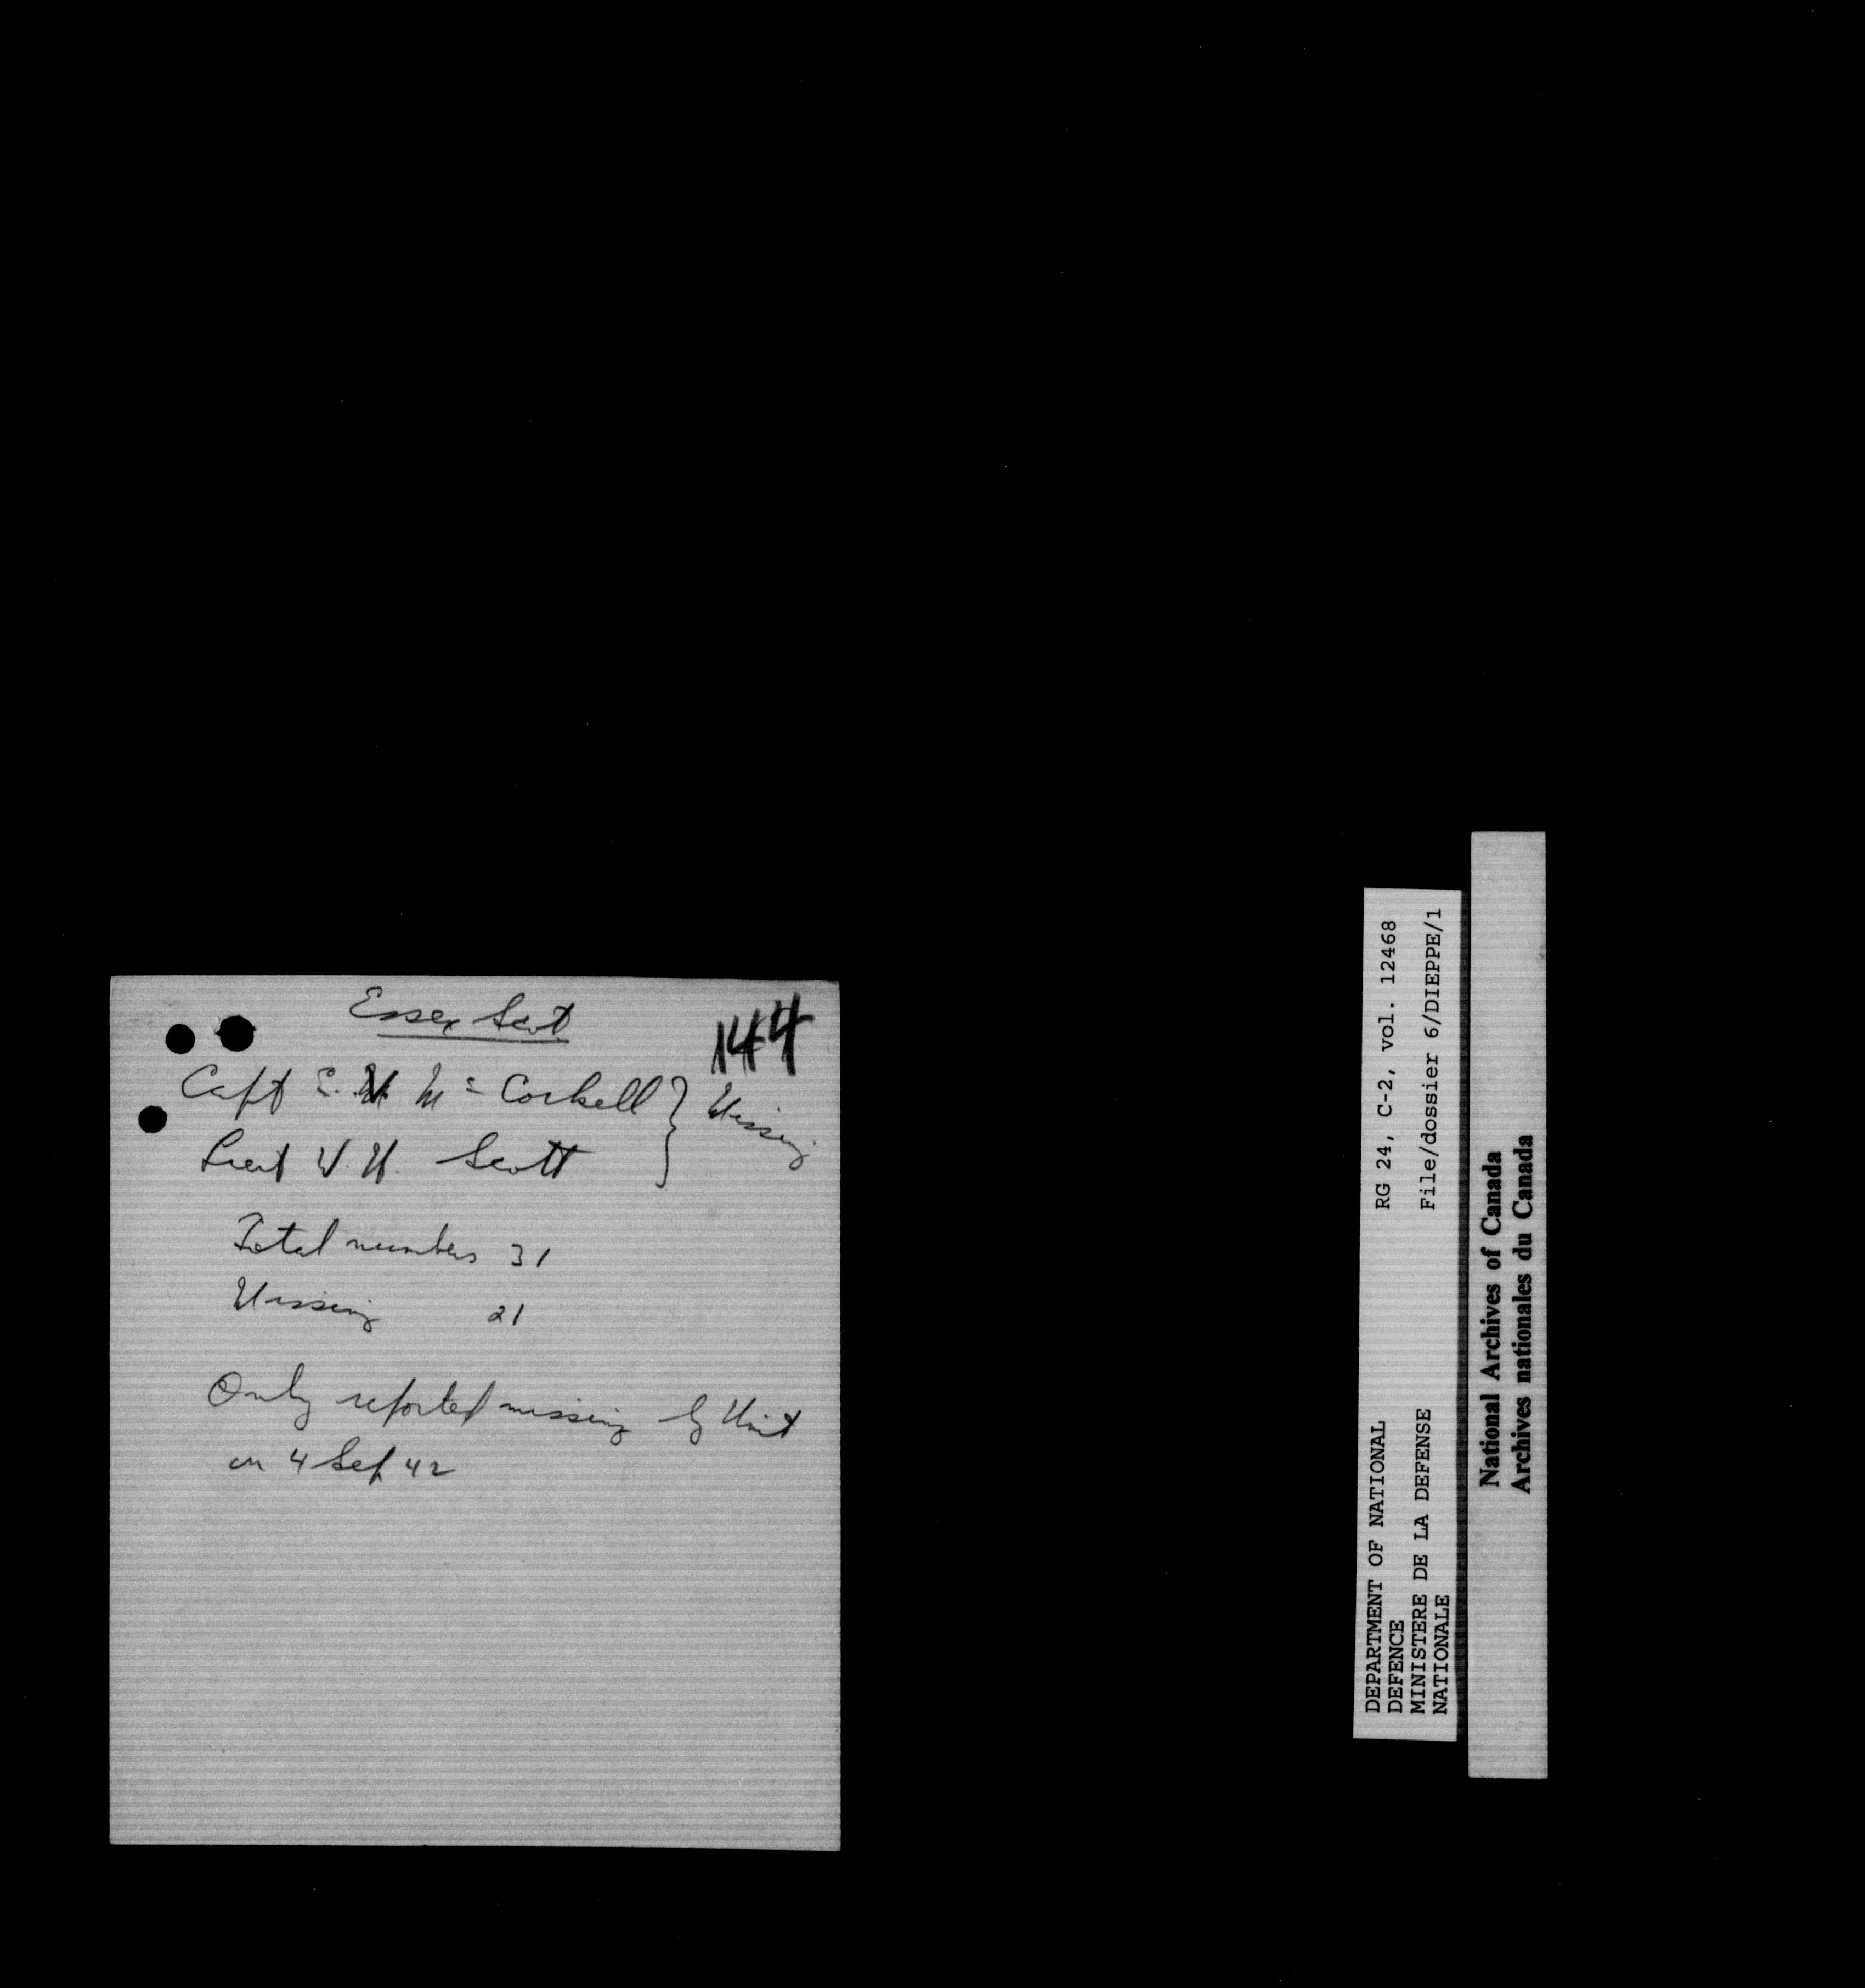 Essex Scot
144
Capt E. H. Mc Corkell } Missing
Lieut W. H. Scott
Total numbers 31
Missing 21
Only reported missing by Unit
on 4 Sep 42
DEPARTMENT OF NATIONAL
DEFENCE
MINISTERE DE LA DEFENSE
NATIONALE
RG 24, C-2, vol. 12468
File/dossier 6/DIEPPE/1
National Archives of Canada
Archives nationales du Canada